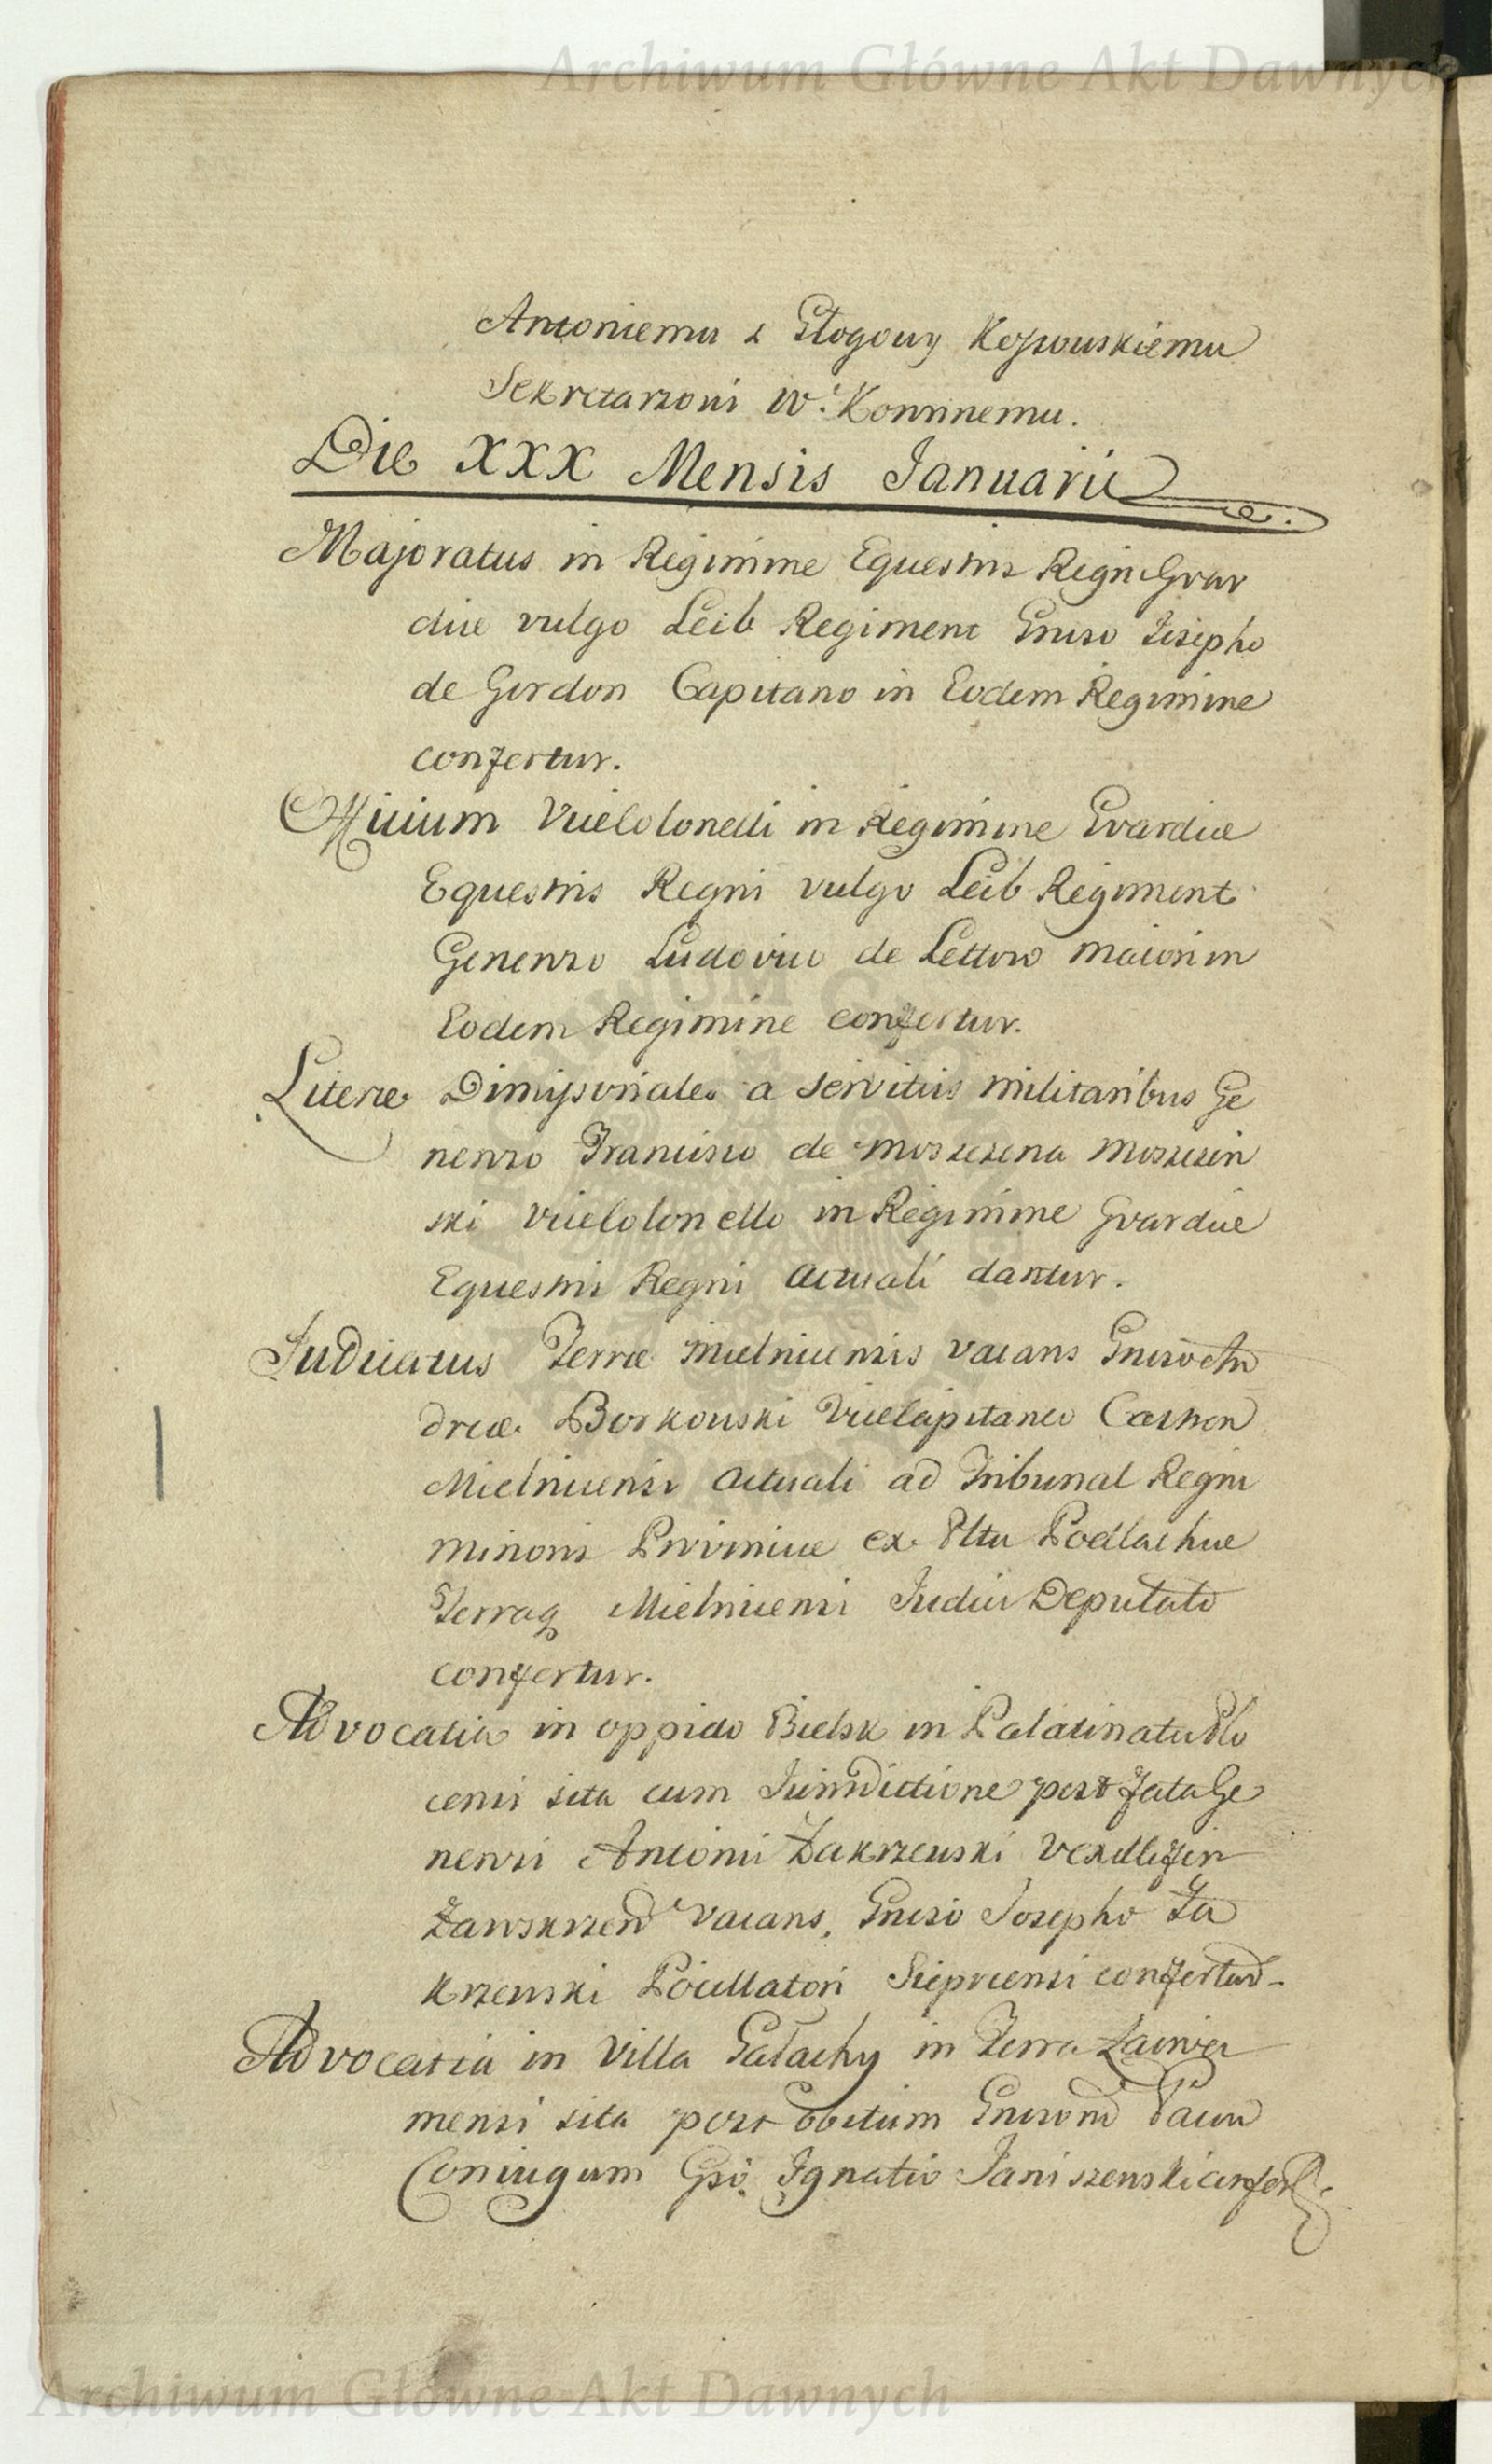 Archiwum Główne Akt Dawnych
Antoniemu z Głogowy Kossowskiemu
Sekretarzowi W. Koronnemu.
Die XXX Mensis Januarii
Majoratus in Regimine Equestris Regni Gvar
diæ vulgo Leib Regiment Gnroso Josepho
de Gordon Capitano in Eodem Regimine
confertur.
Officium Vicelolonelli in Regimine Gvardiæ
Equestris Regni vulgo Leib Regiment
Generoso Ludovico de Lettow Maiori in
Eodem Regimine confertur.
Literæ Dimissoriales a servitiis militaribus Ge
neroso Francisco de Moszczena Moszczen
ski Vicelolonello in Regimine Gvardiæ
Equestris Regni actuali dantur.
Judicatus Terræ Mielnicensis vacans Gnroso An
dreæ Borkowski Vicecapitaneo Castren
Mielnicensi actuali ad Tribunal Regni
Minoris Provinciæ ex Pltu Podlachiæ
Terraq Mielnicensi Judici Deputato
confertur.
Advocatia in oppido Bielsk in Palatinatu Plo
censi sita cum Jurisdictione post fata Ge
nerosi Antonii Zakrzewski Vexillifer
Zawskrzen vacans, Gnroso Josepho Za
krzewski Pocillatori Sieprcensi confertur
Advocatia in Villa Gałachy in Terra Zawicr
mensi sita post obitum Gnrosor Pacur
Coniugum Gso Ignatio Janiszewski confert
Archiwum Główne Akt Dawnych